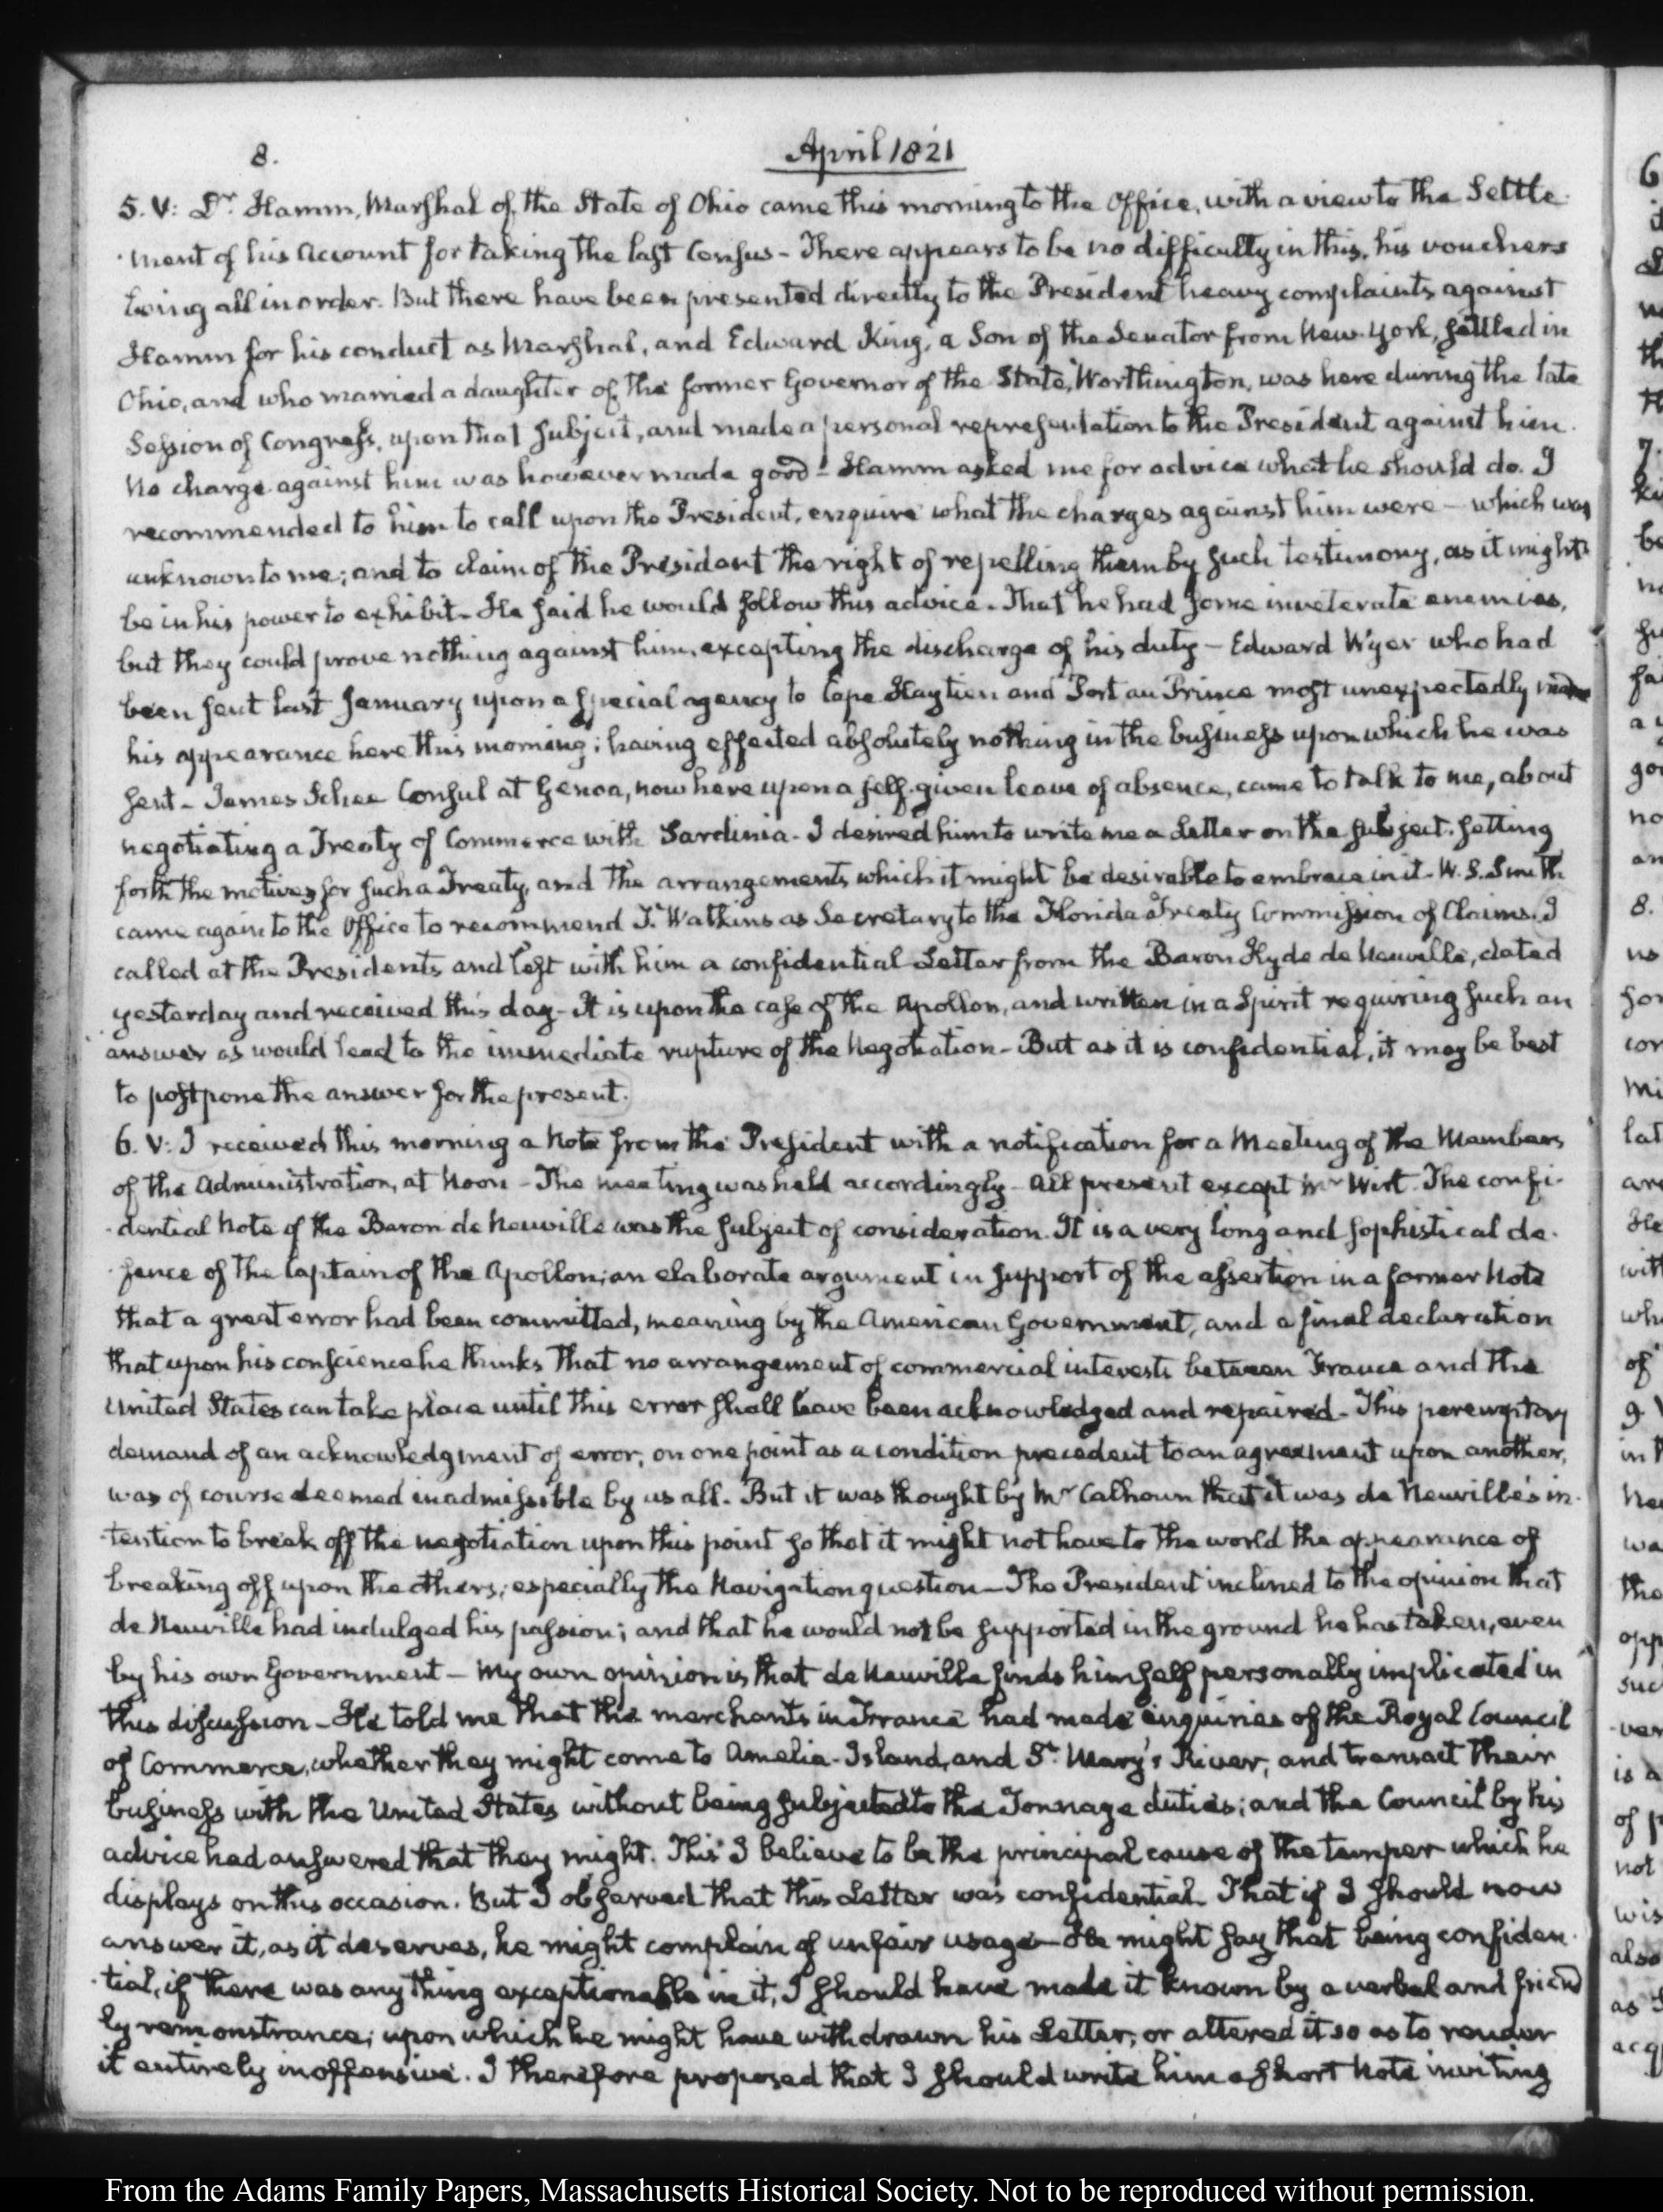 8.
April 1821
5. V: Dr. Hamm, Marshal of the State of Ohio came this morning to the Office, with a view to the Settle-
-ment of his Account for taking the last Census - There appears to be no difficulty in this, his vouchers
being all in order. But there have been presented directly to the President heavy complaints against
Hamm for his conduct as Marshal, and Edward King, a Son of the Senator from New-York, settled in
Ohio, and who married a daughter of the former Governor of the State, Worthington, was here during the late
Session of Congress, upon that subject, and made a personal representation to the President against him.
No charge against him was however made good - Hamm asked me for advice what he should do. I
recommended to him to call upon the President, enquire what the charges against him were - which was
unknown to me; and to claim of the President the right of repelling them by such testimony, as it might
be in his power to exhibit - He said he would follow this advice. That he had some inveterate enemies,
but they could prove nothing against him, excepting the discharge of his duty - Edward Wyer who had
been sent last January upon a special agency to Cape Haytien and Port au Prince most unexpectedly made
his appearance here this morning; having effected absolutely nothing in the business upon which he was
sent - James Schee Consul at Genoa, now here upon a self-given leave of absence, came to talk to me, about
negotiating a Treaty of Commerce with Sardinia - I desired him to write me a Letter on the subject. setting
forth the motives for such a Treaty, and the arrangements which it might be desirable to embrace in it - W. S. Smith
came again to the Office to recommend T. Watkins as Secretary to the Florida Treaty Commission of Claims. I
called at the Presidents and left with him a confidential Letter from the Baron Hyde de Neuville, dated
yesterday and received this day - It is upon the case of the Apollon, and written in a Spirit requiring such an
answer as would lead to the immediate rupture of the Negotiation - But as it is confidential, it may be best
to postpone the answer for the present.
6. V: I received this morning a Note from the President with a notification for a Meeting of the Members
of the Administration, at Noon - The meeting was held accordingly - All present except Mr Wirt. The confi-
-dential Note of the Baron de Neuville was the subject of consideration. It is a very long and sophistical de-
-fence of the Captain of the Apollon; an elaborate argument in support of the assertion in a former Note
that a great error had been committed, meaning by the American Government, and a final declaration
that upon his conscience he thinks that no arrangement of commercial interests between France and the
United States can take place until this error shall have been acknowledged and repaired - This peremptory
demand of an acknowledgment of error, on one point as a condition precedent to an agreement upon another,
was of course deemed inadmissible by us all. But it was thought by Mr Calhoun that it was de Neuville's in-
-tention to break off the negotiation upon this point so that it might not have to the world the appearance of
breaking off upon the others; especially the Navigation question - The President inclined to the opinion that
de Neuville had indulged his passion; and that he would not be supported in the ground he has taken, even
by his own Government - My own opinion is that de Neuville finds himself personally implicated in
this discussion - He told me that the merchants in France had made enquiries of the Royal Council
of Commerce, whether they might come to Amelia-Island, and St. Mary's River, and transact their
business with the United States without being subjected to the Tonnage duties; and the Council by his
advice had answered that they might. This I believe to be the principal cause of the temper which he
displays on this occasion. But I observed that this Letter was confidential. That if I should now
answer it, as it deserves, he might complain of unfair usage - He might say that being confiden-
-tial, if there was any thing exceptionable in it, I should have made it known by a verbal and friend
ly remonstrance; upon which he might have withdrawn his Letter; or altered it so as to render
it entirely inoffensive. I therefore proposed that I should write him a short Note inviting
From the Adams Family Papers, Massachusetts Historical Society. Not to be reproduced without permission.